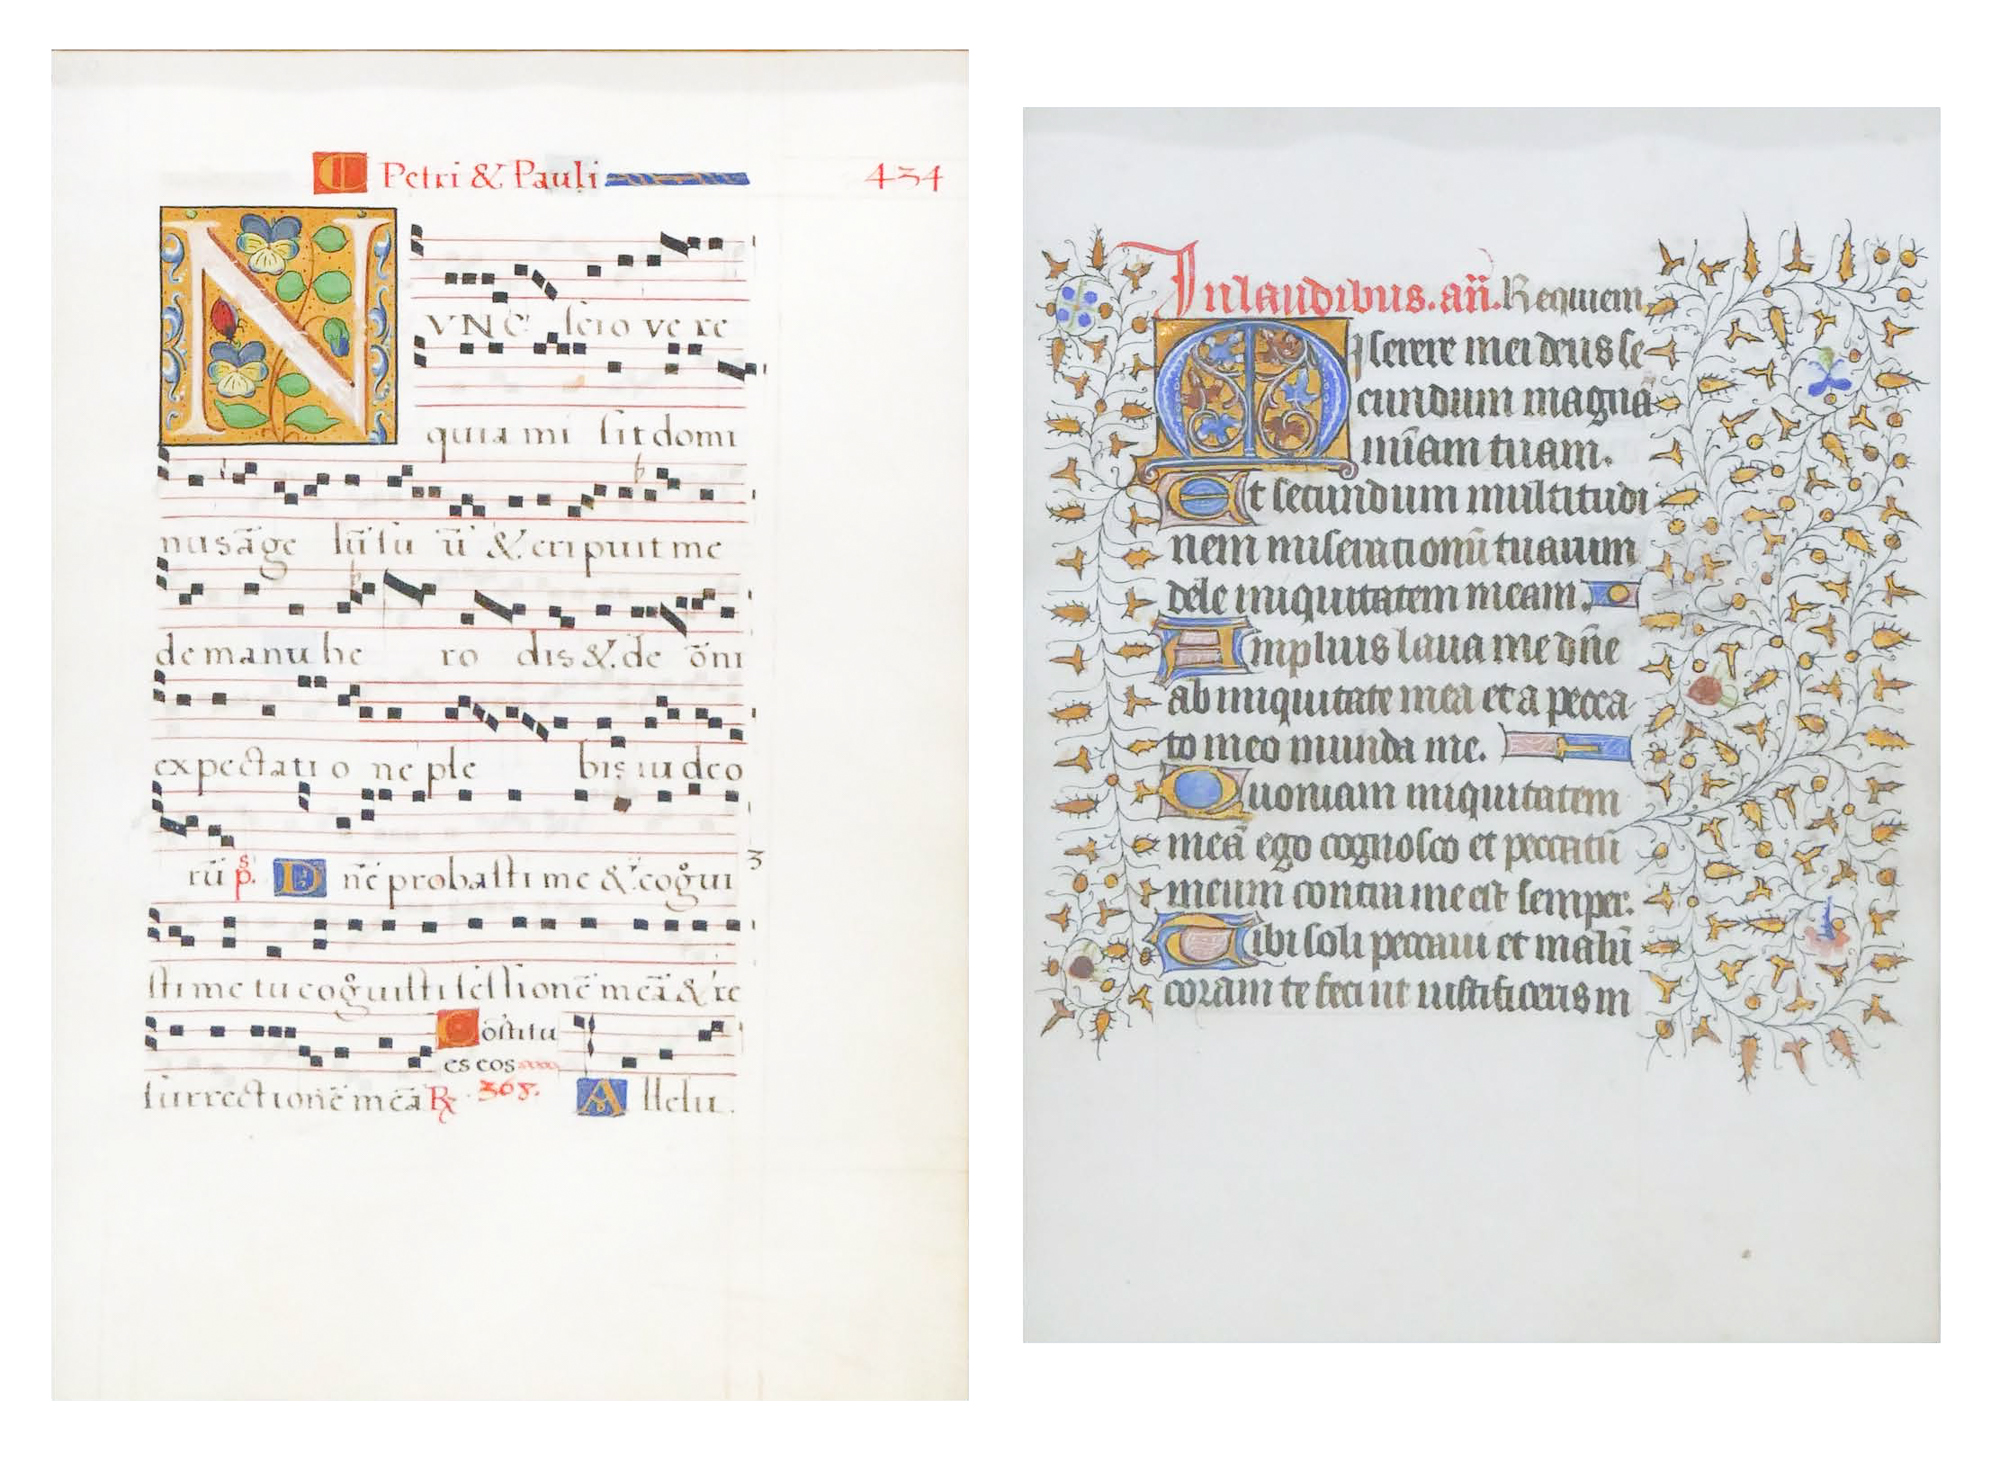 C Petri & Pauli 434
NVNC scio vere
quia mi sit domi
nus āge lū su ū & eripuit me
de manu he ro dis & de ōni
expectati o ne ple bis iudeo
rū ps. Dn̄e probasti me & cogui
sti me tu coguisti sessionē meā & re
Cōstitu
es eos
surrectionē meā R⁊ 368. Allelu.
In laudibus. an̄. Requiem
Miserere mei deus se
cundum magnā
mīam tuam.
Et secundum multitudi
nem miserationū tuarum
dele iniquitatem meam.
Amplius laua me dn̄e
ab iniquitate mea et a pecca
to meo munda me.
Quoniam iniquitatem
meā ego cognosco et peccatū
meum contra me est semper.
Tibi soli peccaui et malū
coram te feci ut iustificeris in